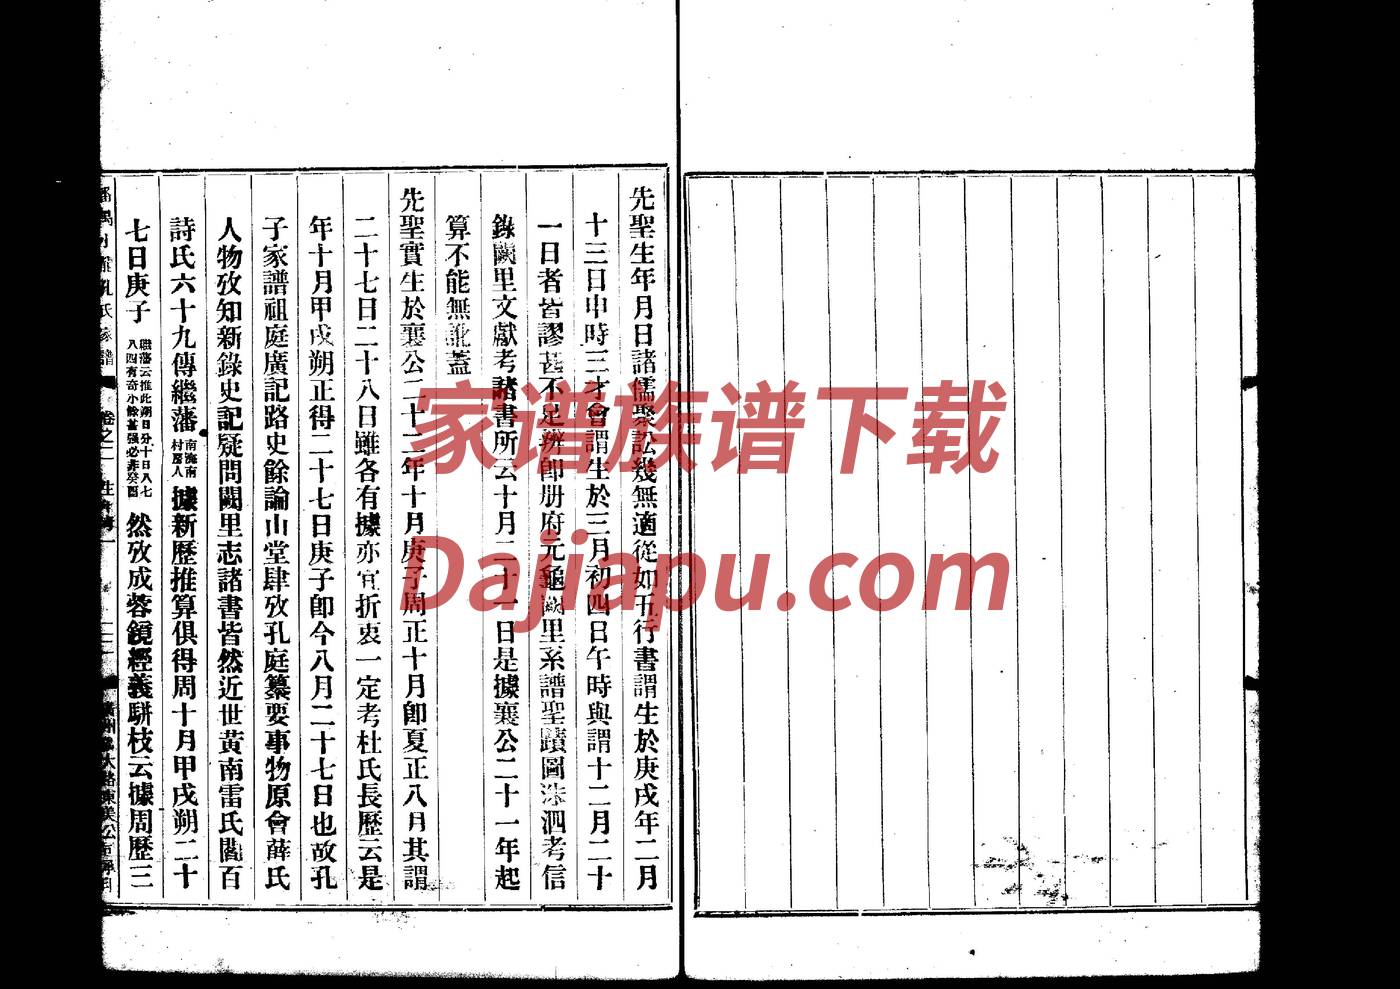 先聖生年月日諸儒聚訟幾無適從如五行書謂生於庚戌年二月
十三日申時三才會謂生於三月初四日午時與謂十二月二十
一日者皆謬甚不足辨卽册府元龜闕里系譜聖蹟圖洙泗考信
錄闕里文獻考諸書所云十月二十一日是據襄公二十一年起
算不能無訛蓋
先聖實生於襄公二十二年十月庚子周正十月卽夏正八月其謂
二十七日二十八日雖各有據亦宜折衷一定考杜氏長歷云是
年十月甲戌朔正得二十七日庚子卽今八月二十七日也故孔
子家譜祖庭廣記路史餘論山堂肆攷孔庭纂要事物原會薛氏
人物攷知新錄史記疑問闕里志諸書皆然近世黃南雷氏閻百
詩氏六十九傳繼藩南海南村房人據新歷推算俱得周十月甲戌朔二十
七日庚子繼藩云推此朔日分十日八七八四有奇小餘甚强必非癸酉然攷成蓉鏡經義駢枝云據周歷三
孔氏家譜
卷之二
家谱族谱下载
Dajiapu.com